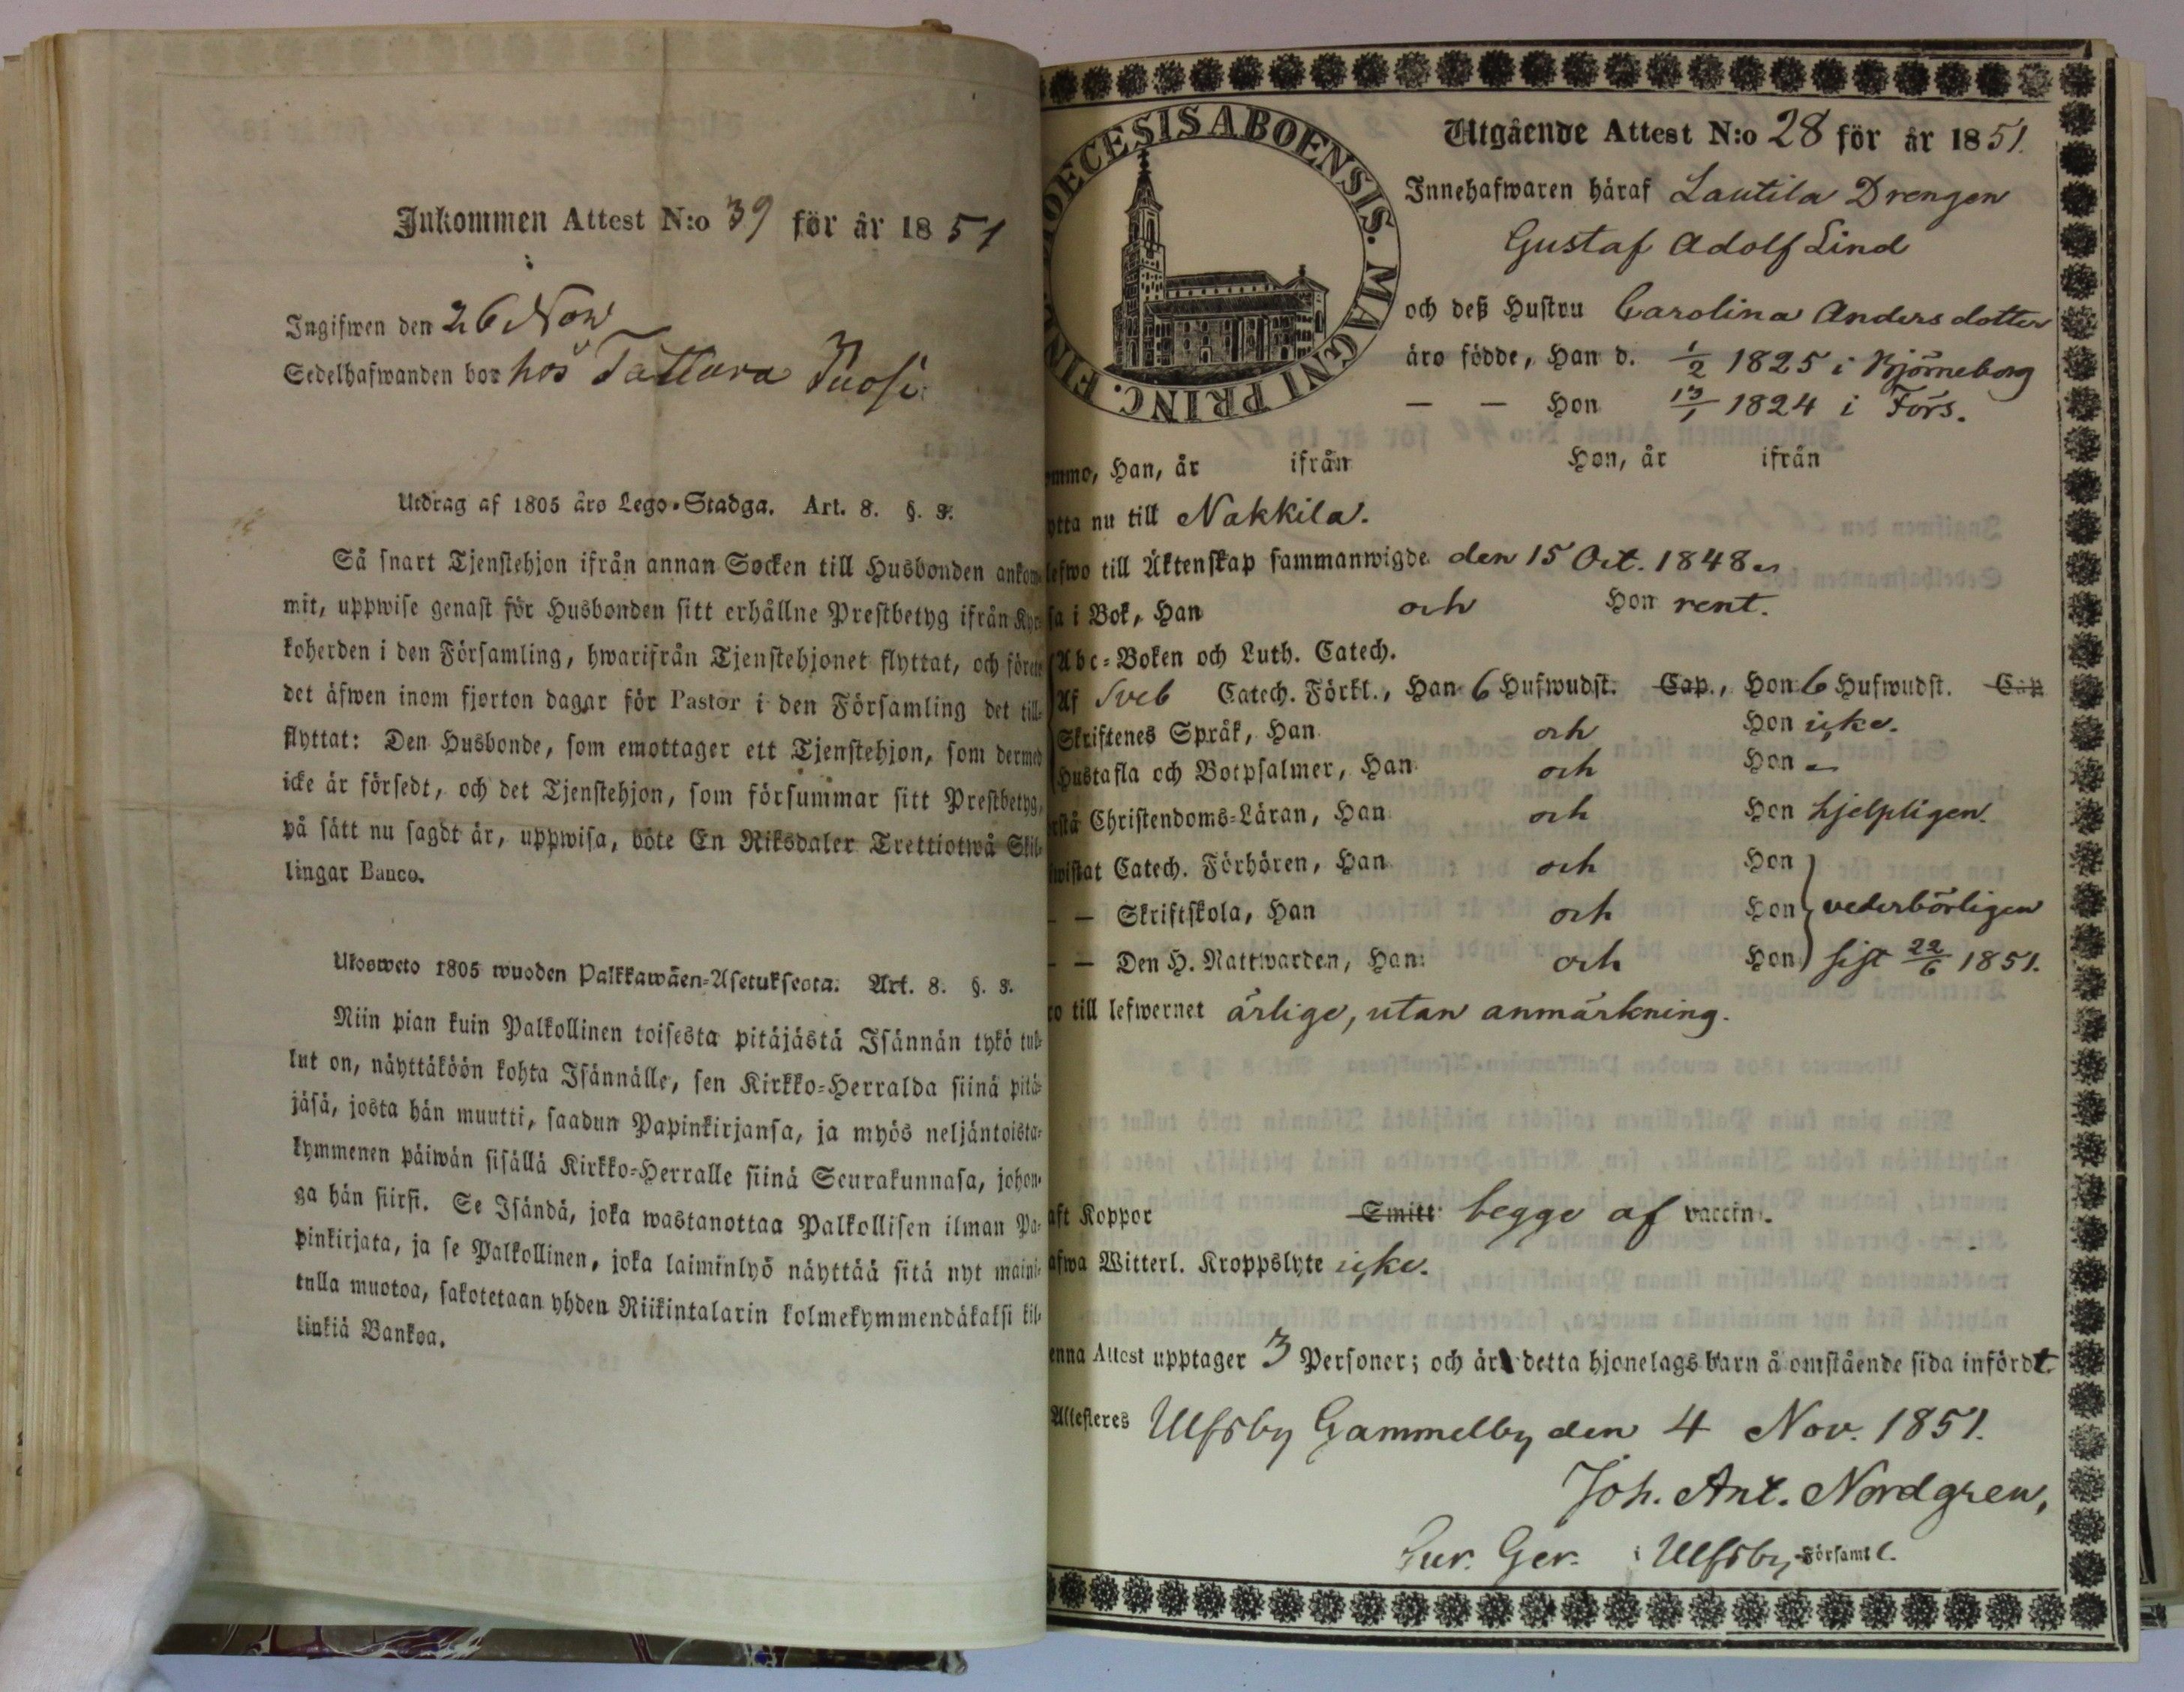 Inkommen Attest N:o 39 för år 1851
Ingifwen den 26 Nov
Sedelhafwanden bor hos Tattara
Utdrag af 1805 års Lego-Stadga. Art. 8. §. 3.
Så snart Tjenstehjon ifrån annan Socken till Husbonden ankom-
mit, uppwise genast för Husbonden sitt erhållne Prestbetyg ifrån Kyr-
koherden i den Församling, hwarifrån Tjenstehjonet flyttat, och förete
det äfwen inom fjorton dagar för Pastor i den Församling det till-
flyttat: Den Husbonde, som emottager ett Tjenstehjon, som dermed
icke är försedt, och det Tjenstehjon, som försummar sitt Prestbetyg,
på sätt nu sagdt är, uppwisa, böte En Riksdaler Trettiotwå Skil-
lingar Banco.
Ulosweto 1805 wuoden Palkkawäen-Asetuksesta. Art. 8. §. 3.
Niin pian kuin Palkollinen toisesta pitäjästä Isännän tykö tul-
lut on, näyttäköön kohta Isännälle, sen Kirkko-Herralda siinä pitä-
jäsä, josta hän muutti, saadun Papinkirjansa, ja myös neljäntoista-
kymmenen päiwän sisällä Kirkko-Herralle siinä Seurakunnasa, johon-
ga hän siirsi. Se Isändä, joka wastanottaa Palkollisen ilman Pa-
pinkirjata, ja se Palkollinen, joka laiminlyö näyttää sitä nyt maini-
tulla muotoa, sakotetaan yhden Riikintalarin kolmekymmendäkaksi kil-
linkiä Bankoa.
DIOECESIS ABOENSIS. MAGNI PRINC. FINL.
Utgående Attest N:o 28 för år 1851.
Innehafwaren häraf Lautila Drengen
Gustaf Adolf Lind
och deß Hustru Carolina Andersdotter
äro födde, Han d. 1/2 1825 i Björneborg
— — Hon 13/1 1824 i Förs.
ommo, Han, år ifrån Hon, år ifrån
ytta nu till Nakkila.
lefwo till Äktenskap sammanwigde den 15 Oct. 1848
sa i Bok, Han och Hon rent.
Abc-Boken och Luth. Catech.
Af Sveb Catech. Förkl., Han 6 Hufwudst. Cap., Hon 6 Hufwudst. Cap
Skriftenes Språk, Han och Hon icke.
Hustafla och Botpsalmer, Han och Hon
rstå Christendoms-Läran, Han och Hon hjelpligen.
wistat Catech. Förhören, Han och Hon
— — Skriftskola, Han och Hon vederbörligen
— — Den H. Nattwarden, Han och Hon sist 22/6 1851.
ro till lefwernet ärlige, utan anmärkning.
aft Koppor Smitt begge af vaccin.
afwa Witterl. Kroppslyte icke.
enna Attest upptager 3 Personer; och är detta hjonelags barn å omstående sida infördt.
Attesteres Ulfsby Gammelby den 4 Nov. 1851.
Joh. Ant. Nordgren,
Cur. Ger. i Ulfsby Församl.